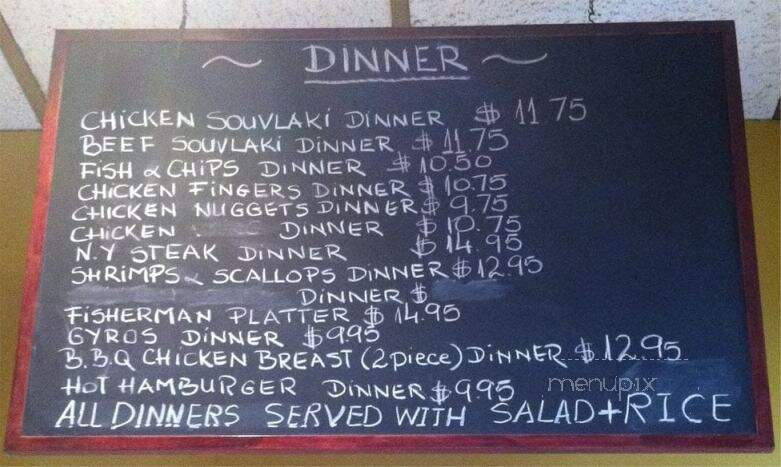 ~ DINNER ~
CHICKEN SOUVLAKI DINNER $ 11 75
BEEF SOUVLAKI DINNER $ 11.75
FISH & CHIPS DINNER $ 10.50
CHICKEN FINGERS DINNER $ 10.75
CHICKEN NUGGETS DINNER $ 9.75
CHICKEN . DINNER $ 10.75
N.Y STEAK DINNER $ 14.95
SHRIMPS & SCALLOPS DINNER $ 12.95
DINNER $
FISHERMAN PLATTER $ 14.95
GYROS DINNER $ 9.95
B.B.Q CHICKEN BREAST (2 piece) DINNER $ 12.95
HOT HAMBURGER DINNER $ 9.95
menupix
ALL DINNERS SERVED WITH SALAD + RICE